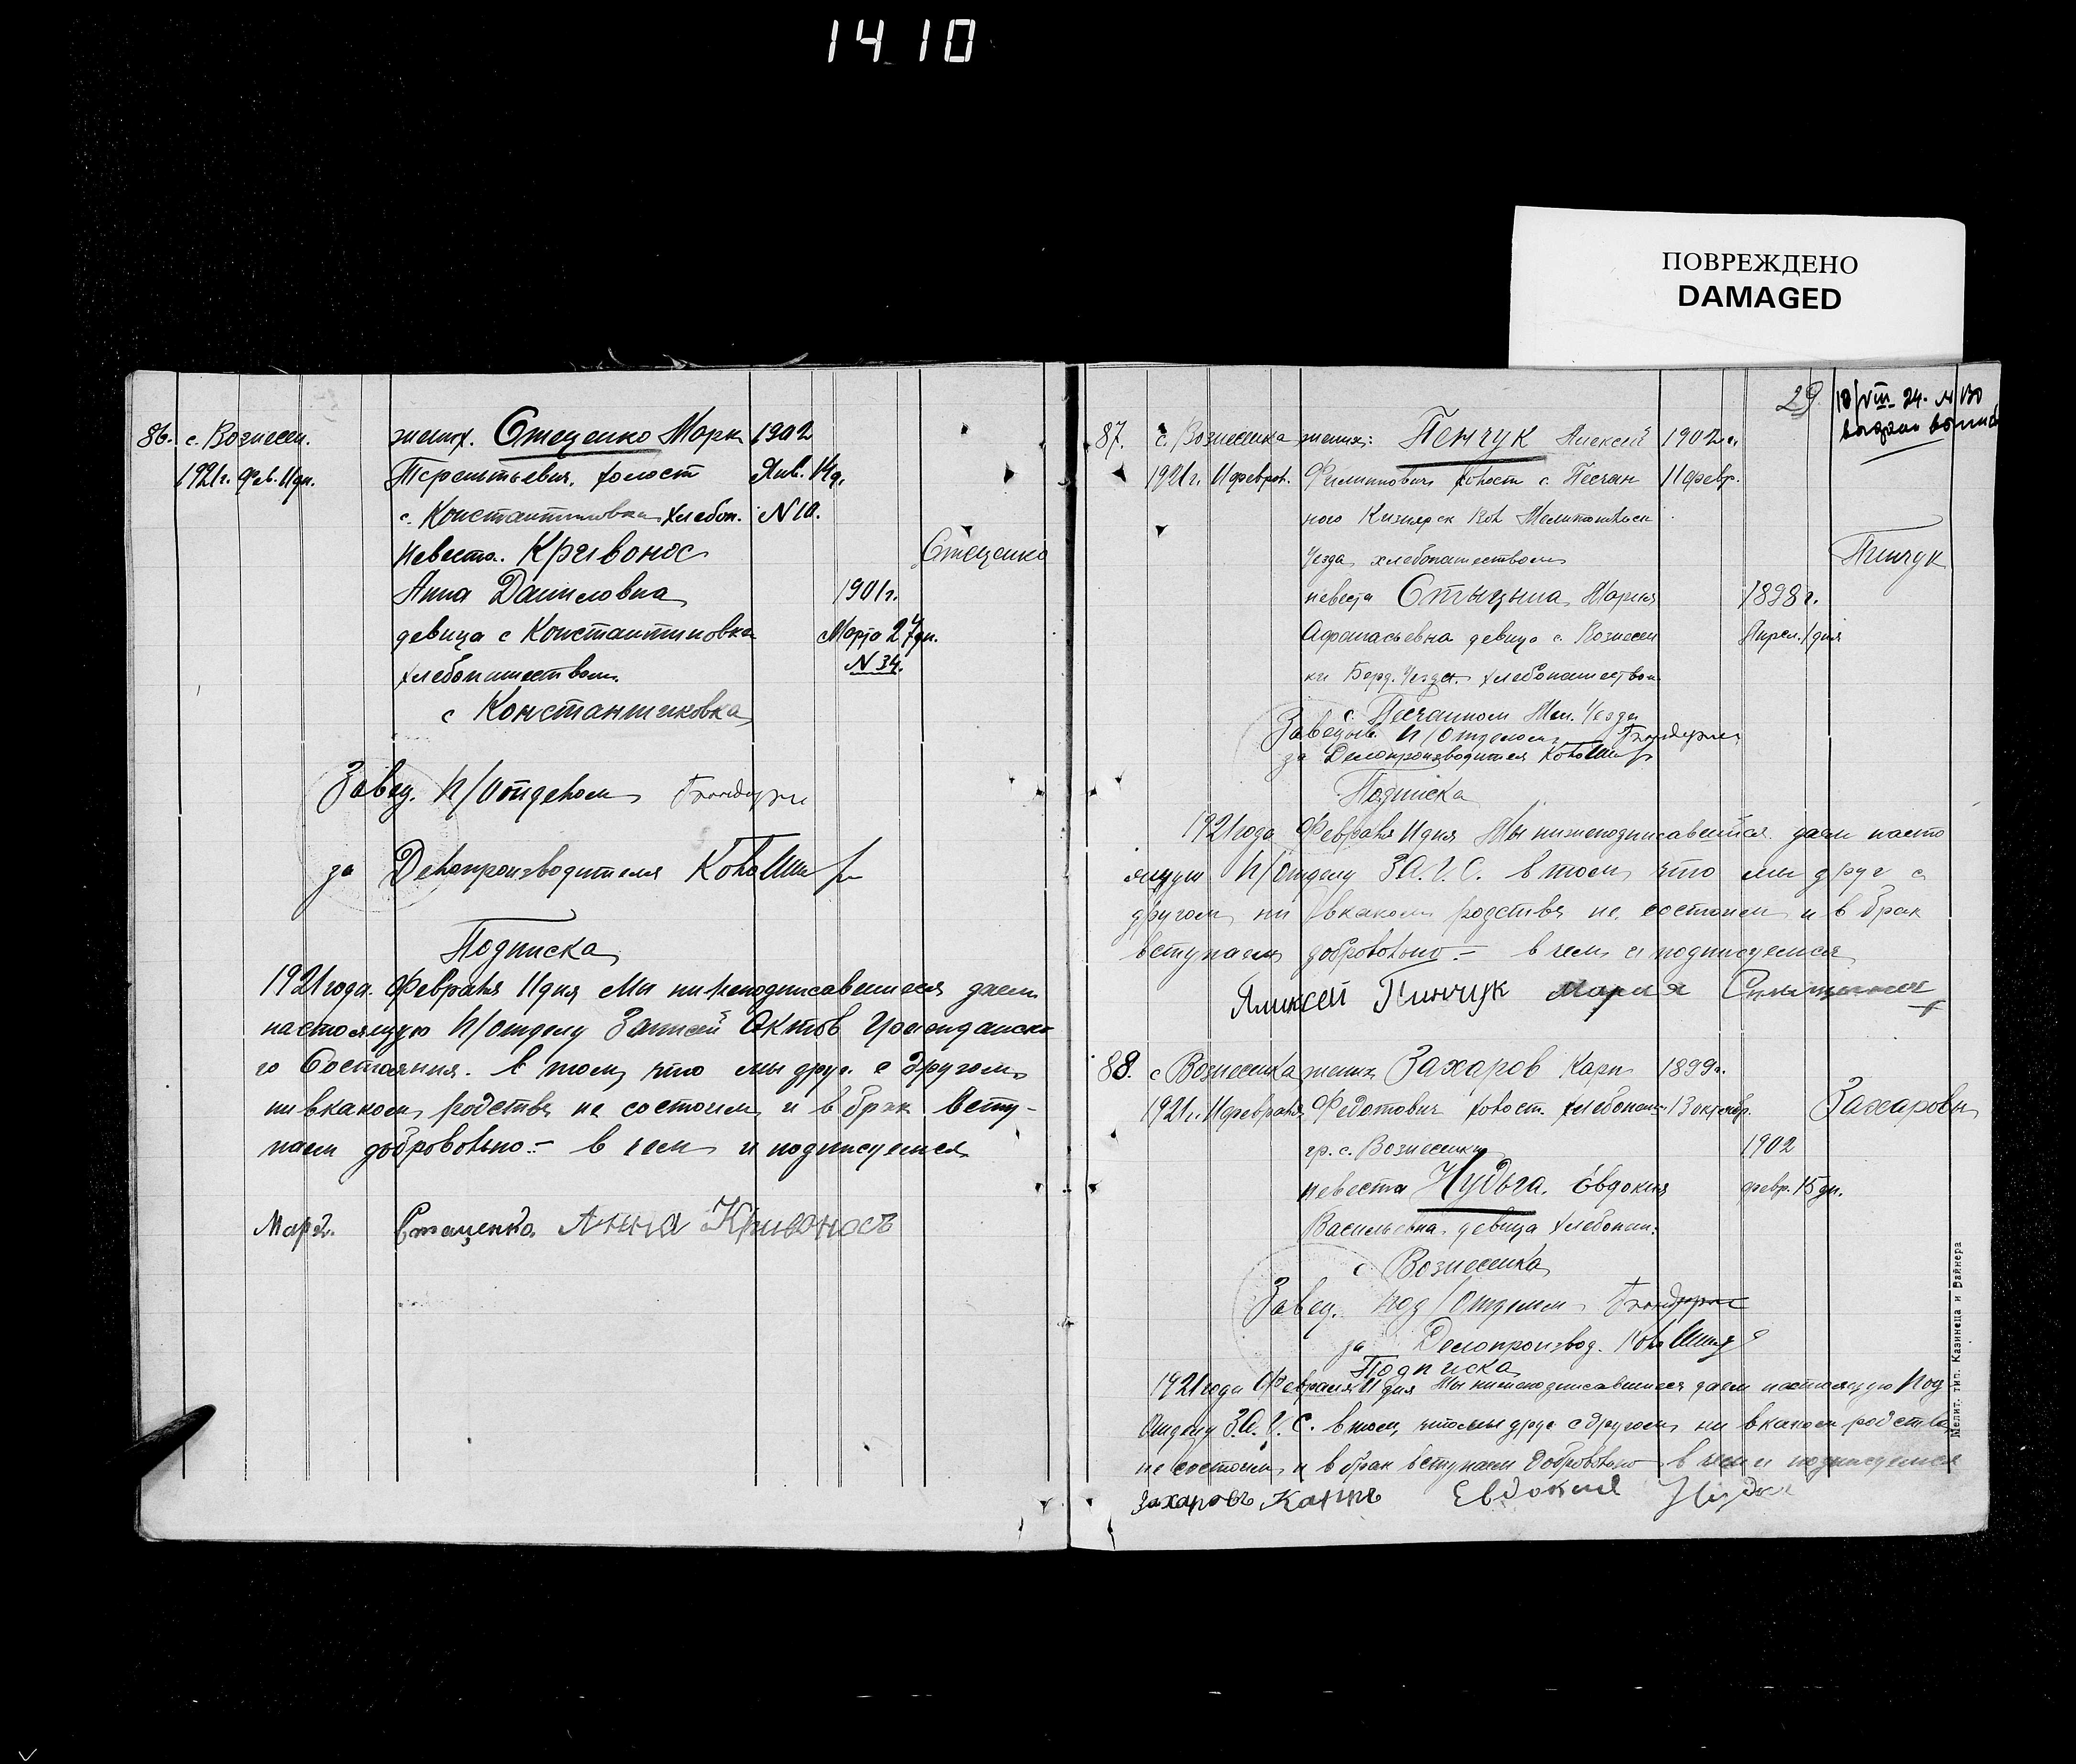 1410
ПОВРЕЖДЕНО
DAMAGED
86. с. Вознесен. жених. Стеценко Марк 1902
1921г. Фев. 11дн. Терентьевич, холост Янв. 14д.
с. Константиновка хлебоп. N 10.
Невеста. Кривонос Стеценко
Анна Даниловна 1901г.
девица с Константиновка Марта 27дн.
хлебопашеством N 34.
с Константиновка
Завед. П/Отделом
за Делопроизводителя
Подписка
1921 года. Февраля 11 дня Мы нижеподписавшиеся даем
настоящую П/отделу Записей Актов Гражданско
го Состояния. в том, что мы друг с другом
ни в каком родстве не состоим и в брак всту-
паем добровольно – в чем и подписуемся
Марк. Стаценко. Анна Кривоносъ
29 18/VIII 24. N 130
87. с. Вознесенка жених: Пенчук Алексей 1902 г.
1921 г. 11 феврал. Филиппович холост с. Песчан 11 февр.
ного Кизиярск Вол Мелитопольск
Уезда, хлебопашеством Пенчук
невеста Мария 1898 г.
Афанасьевна девица с. Вознесен Апрел. 1 дня
ки Берд. Уезда. хлебопашеством
с. Песчанском Мел. Уезда
Заведыв. П/Отделом
за Делопроизводителя
Подписка
1921 года Февраля 11 дня Мы нижеподписавшиеся даем насто
ящую П/Отделу З.А.Г.С. в том, что мы друг с
другом, ни в каком родстве не состоим и в брак
вступаем добровольно – в чем и подписуемся
Аликсей Пинчук Мария
88. с Вознесенка жених Захаров Карп 1899 г.
1921 г. 11 февраля Федотович холост. хлебопаш. 13 октябр. Захаровы
гр. с. Вознесенки 1902
невеста Нудьга. Евдокия февр. 15 дн.
Васильевна девица хлебопаш.
с Вознесенка
Завед. под/Отделом
за Делопроизвод.
Подписка
1921 года Февраля 11 дня Мы нижеподписавшиеся даем настоящую Под
Отделу З.А.Г.С. в том, что мы друг с другом, ни в каком родстве
не состоим, и в брак вступаем добровольно в чем и подписуемся
Захаровъ Карпъ Евдокия
Мелит. тип. Казинеца и Вайнера